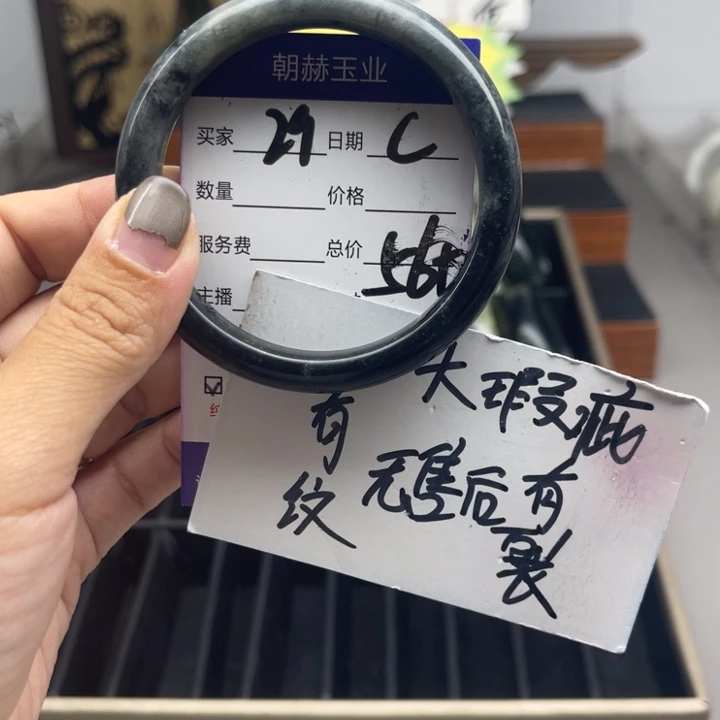 朝赫玉业
买家 29 日期 C
数量 价格
服务费 总价
主播
大瑕疵
有纹
无售后有裂